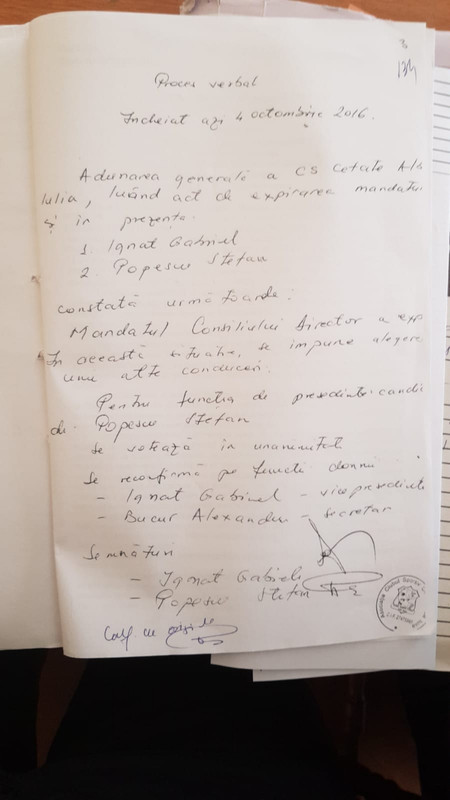 3
134
Proces verbal
Incheiat azi 4 octombrie 2016.
Adunarea generală a CS Cetate Alb
Iulia, luând act de expirarea mandatu
și in prezența:
1. Ignat Gabriel
2. Popescu Ștefan
constată următoarele:
Mandatul Consiliului Director a exp
În această situație, se impune alegere
unu alte conduceri.
Pentru functia de presedinte candi
de Popescu Ștefan
se votează in unanimitate
Se reconfirmă pe functii domnii
- Ignat Gabriel - vicepresedinte
- Bucur Alexandru - secretar
Semnături
- Ignat Gabriel
- Popescu Stefan
Conf. cu